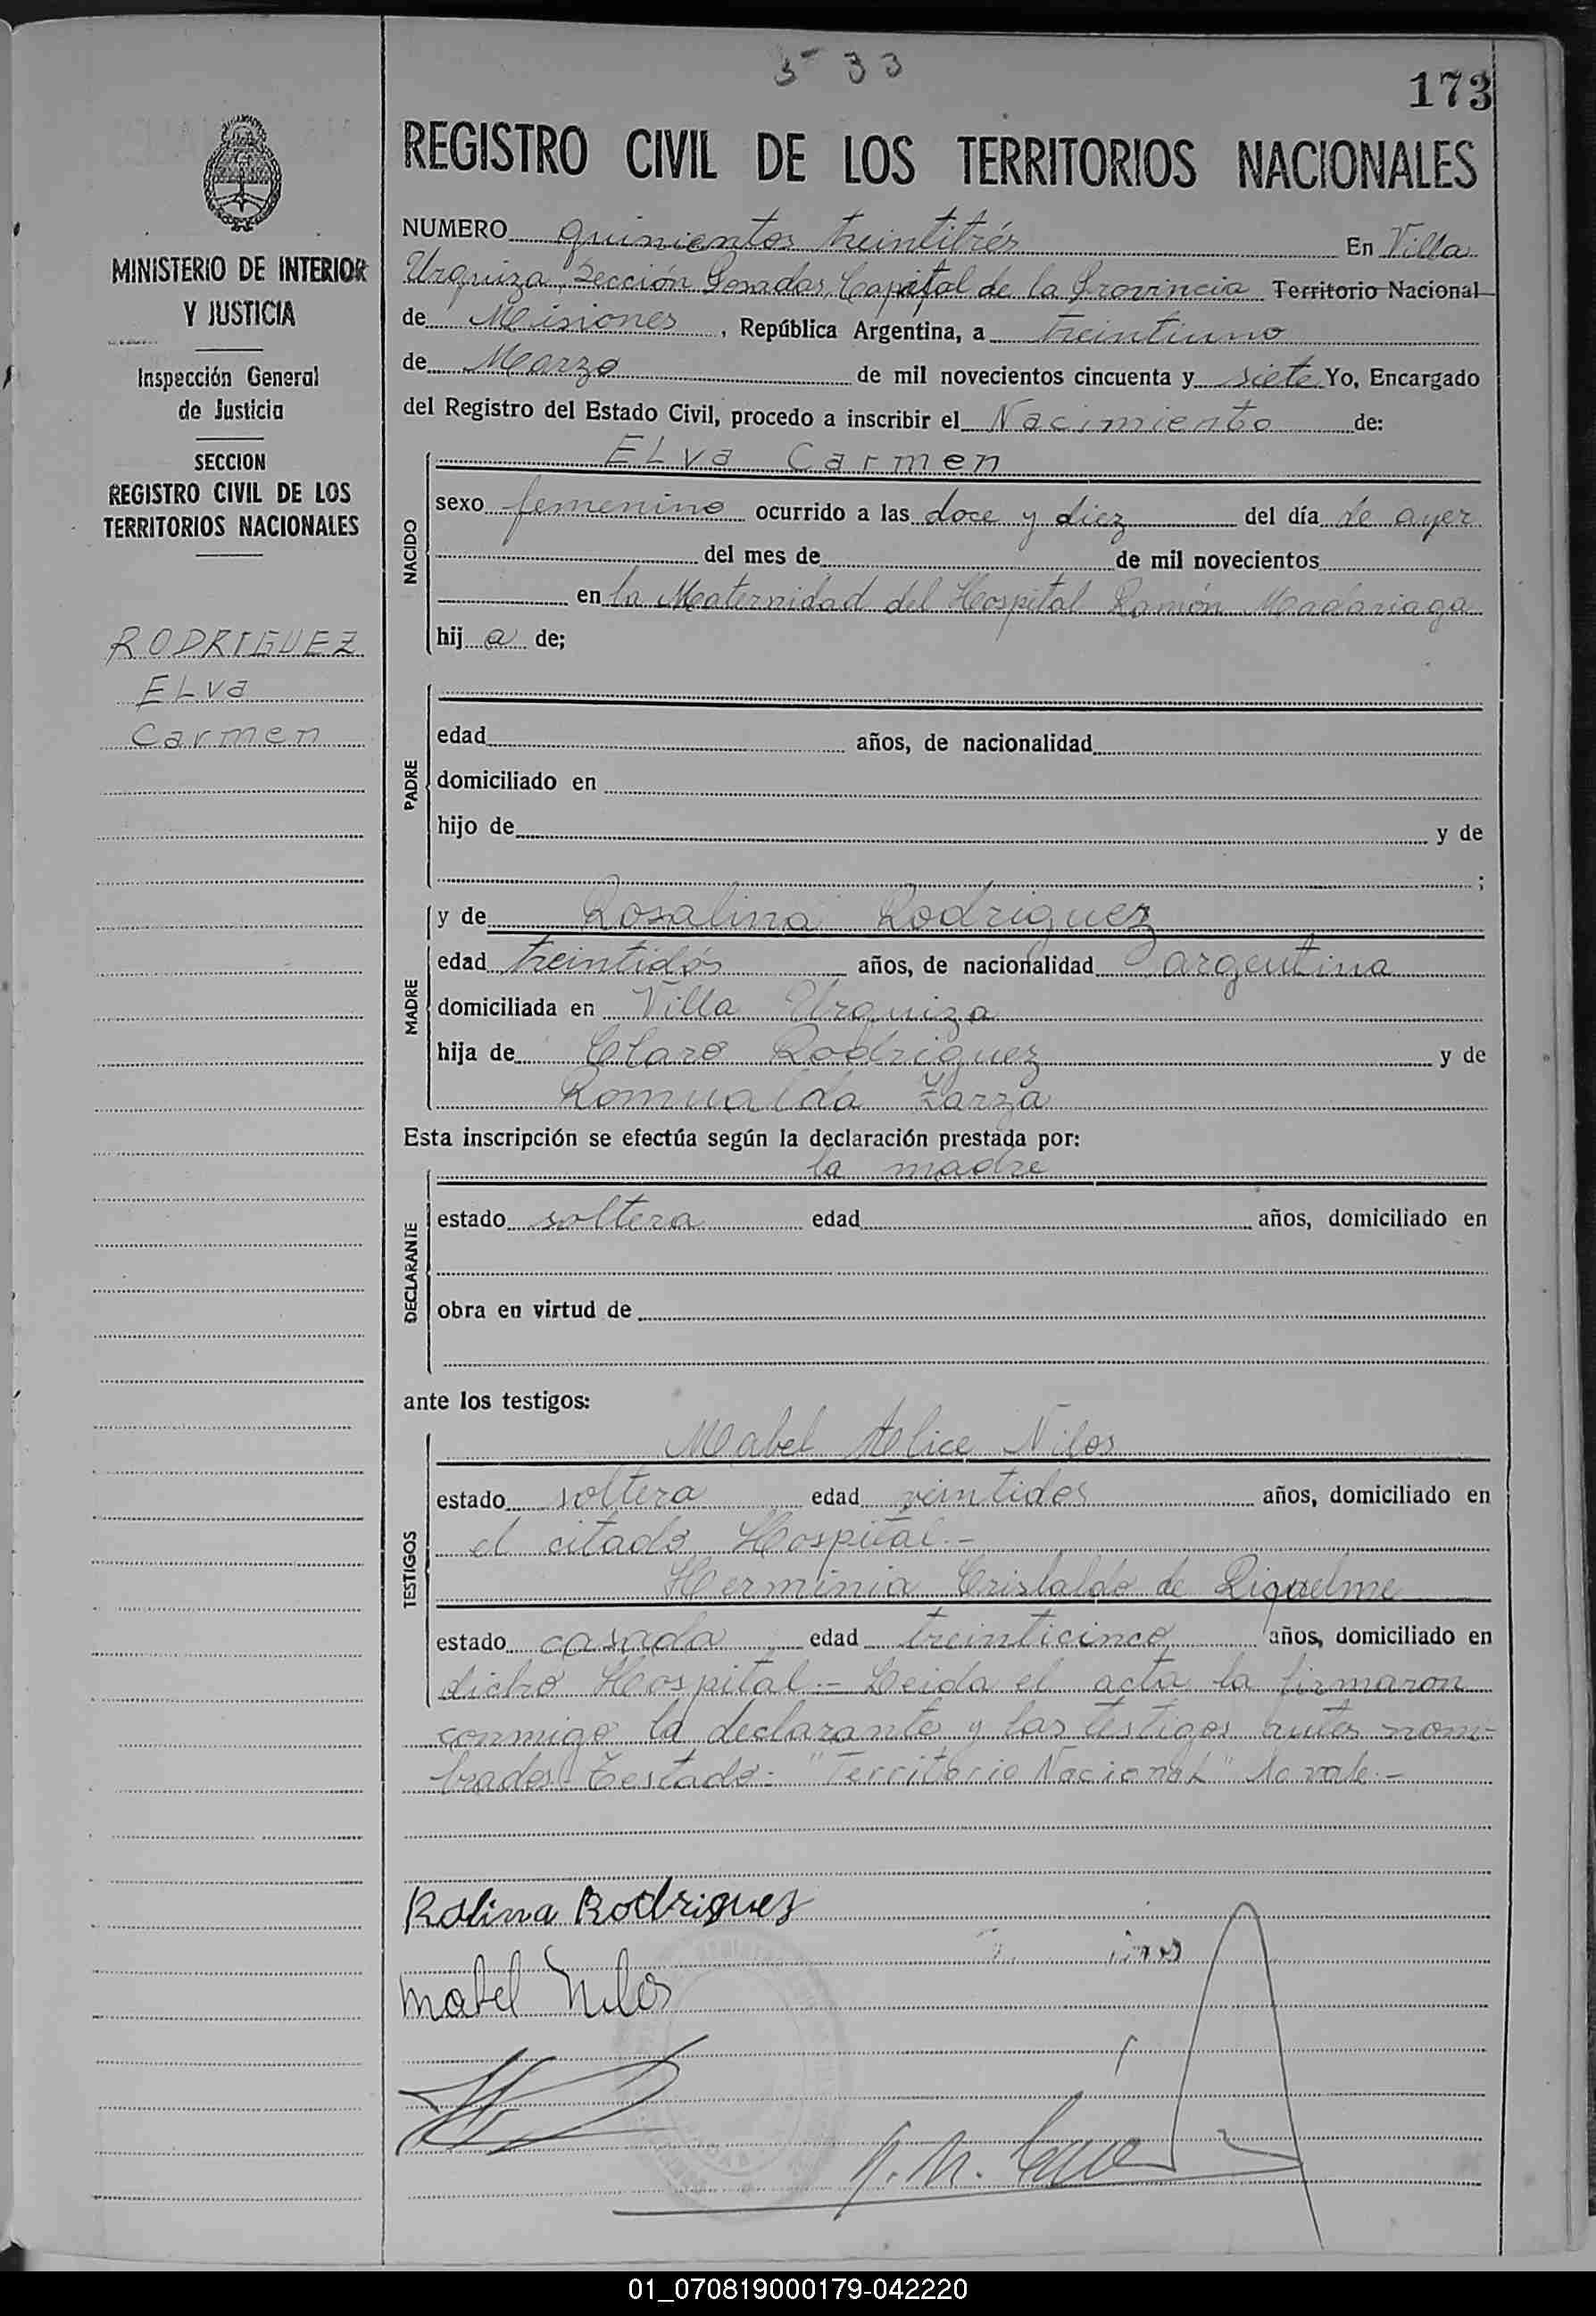 533
173
REGISTRO CIVIL DE LOS TERRITORIOS NACIONALES
MINISTERIO DE INTERIOR
Y JUSTICIA
Inspección General
de Justicia
SECCION
REGISTRO CIVIL DE LOS
TERRITORIOS NACIONALES
RODRIGUEZ
ELva
Carmen
NUMERO quinientos treintitrés En Villa
Urquiza, Sección Posadas, Capital de la Provincia Territorio Nacional
de Misiones, República Argentina, a treintiuno
de Marzo de mil novecientos cincuenta y siete Yo, Encargado
del Registro del Estado Civil, procedo a inscribir el Nacimiento de:
NACIDO
ELva Carmen
sexo femenino ocurrido a las doce y diez del día de ayer
del mes de de mil novecientos
en la Maternidad del Hospital Ramón Madariaga
hij a de;
PADRE
edad años, de nacionalidad
domiciliado en
hijo de y de
;
MADRE
y de Rosalina Rodriguez
edad treintidós años, de nacionalidad argentina
domiciliada en Villa Urquiza
hija de Claro Rodriguez y de
Romualda Zarza
Esta inscripción se efectúa según la declaración prestada por:
DECLARANTE
la madre
estado soltera edad años, domiciliado en
obra en virtud de
ante los testigos:
TESTIGOS
Mabel Alice Nilos
estado soltera edad veintidos años, domiciliado en
el citado Hospital.-
Herminia Cristaldo de Riquelme
estado casada edad treinticinco años, domiciliado en
dicho Hospital.- Leida el acta la firmaron
conmigo la declarante y las testigos antes nom-
brados. Testado: "Territorio Nacional" No vale.-
Rolina Rodriguez
Mabel Nilos
01_070819000179-042220